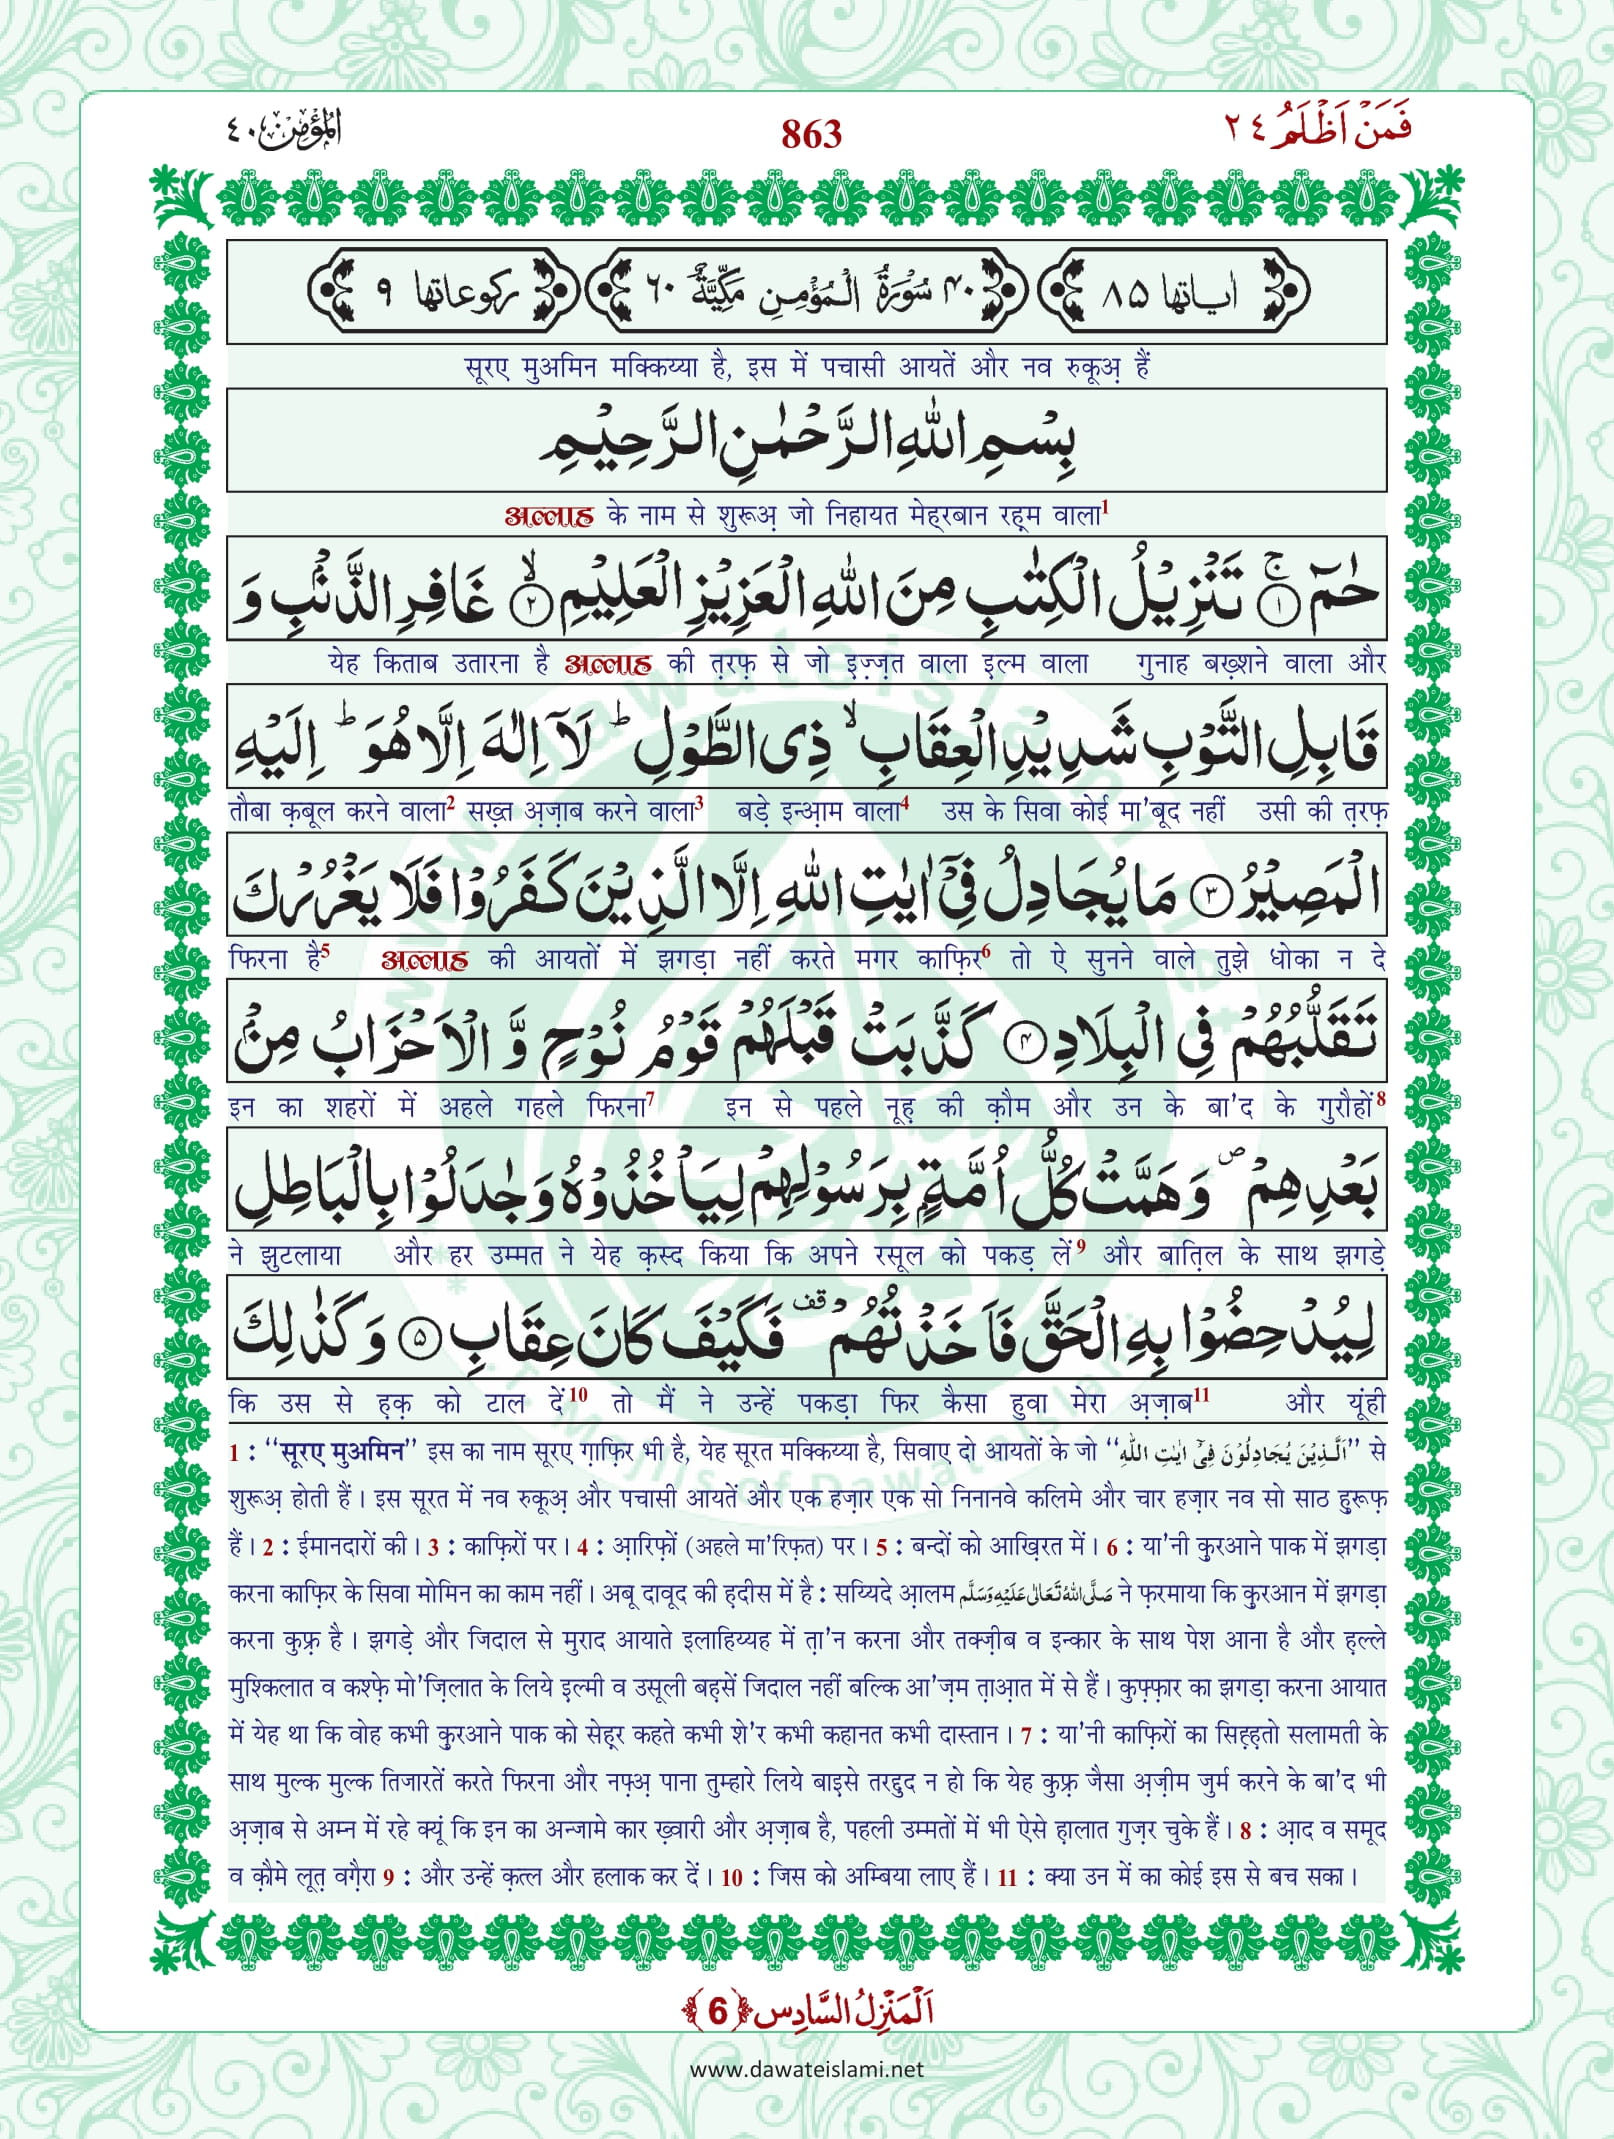 فَمَنْ اَظْلَمُ ٢٤
863
اَلْمُؤْمِن ٤٠
اٰیاتها ۸۵
۴۰ سُوْرَةُ الْمُؤْمِنِ مَكِّيَّةٌ ۶۰
رکوعاتها ۹
सूरए मुअमिन मक्किय्या है, इस में पचासी आयतें और नव रुकूअ़ हैं
بِسْمِ اللّٰهِ الرَّحْمٰنِ الرَّحِيْمِ
अल्लाह के नाम से शुरूअ़ जो निहायत मेहरबान रह़्म वाला1
حٰمٓ ۚ﴿۱﴾ تَنْزِيْلُ الْكِتٰبِ مِنَ اللّٰهِ الْعَزِيْزِ الْعَلِيْمِ ۙ﴿۲﴾ غَافِرِ الذَّنْۢبِ وَ
येह किताब उतारना है अल्लाह की त़रफ़ से जो इ़ज़्ज़त वाला इ़ल्म वाला गुनाह बख़्शने वाला और
قَابِلِ التَّوْبِ شَدِيْدِ الْعِقَابِ ۙ ذِی الطَّوْلِ ؕ لَاۤ اِلٰهَ اِلَّا هُوَ ؕ اِلَيْهِ
तौबा क़बूल करने वाला2 सख़्त अ़ज़ाब करने वाला3 बड़े इन्आ़म वाला4 उस के सिवा कोई मा'बूद नहीं उसी की त़रफ़
الْمَصِيْرُ ﴿۳﴾ مَا يُجَادِلُ فِیْۤ اٰيٰتِ اللّٰهِ اِلَّا الَّذِيْنَ كَفَرُوْا فَلَا يَغْرُرْكَ
फिरना है5 अल्लाह की आयतों में झगड़ा नहीं करते मगर काफ़िर6 तो ऐ सुनने वाले तुझे धोका न दे
تَقَلُّبُهُمْ فِی الْبِلَادِ ﴿۴﴾ كَذَّبَتْ قَبْلَهُمْ قَوْمُ نُوْحٍ وَّ الْاَحْزَابُ مِنْۢ
इन का शहरों में अहले गहले फिरना7 इन से पहले नूह़ की क़ौम और उन के बा'द के गुरौहों8
بَعْدِهِمْ ۪ وَ هَمَّتْ كُلُّ اُمَّةٍۭ بِرَسُوْلِهِمْ لِيَاْخُذُوْهُ وَ جٰدَلُوْا بِالْبَاطِلِ
ने झुटलाया और हर उम्मत ने येह क़स्द किया कि अपने रसूल को पकड़ लें9 और बात़िल के साथ झगड़े
لِيُدْحِضُوْا بِهِ الْحَقَّ فَاَخَذْتُهُمْ ۫ قف فَكَيْفَ كَانَ عِقَابِ ﴿۵﴾ وَ كَذٰلِكَ
कि उस से ह़क़ को टाल दें10 तो मैं ने उन्हें पकड़ा फिर कैसा हुवा मेरा अ़ज़ाब11 और यूंही
1 : ‘‘सूरए मुअमिन’’ इस का नाम सूरए ग़ाफ़िर भी है, येह सूरत मक्किय्या है, सिवाए दो आयतों के जो ‘‘اَلَّذِيْنَ يُجَادِلُوْنَ فِیْۤ اٰيٰتِ اللّٰهِ’’ से
शुरूअ़ होती हैं। इस सूरत में नव रुकूअ़ और पचासी आयतें और एक हज़ार एक सो निनानवे कलिमे और चार हज़ार नव सो साठ ह़ुरूफ़
हैं। 2 : ईमानदारों की। 3 : काफ़िरों पर। 4 : आ़रिफ़ों (अहले मा'रिफ़त) पर। 5 : बन्दों को आख़िरत में। 6 : या'नी क़ुरआने पाक में झगड़ा
करना काफ़िर के सिवा मोमिन का काम नहीं। अबू दावूद की ह़दीस में है : सय्यिदे आ़लम صَلَّى اللّٰهُ تَعَالٰى عَلَيْهِ وَسَلَّم ने फ़रमाया कि क़ुरआन में झगड़ा
करना कुफ़्र है। झगड़े और जिदाल से मुराद आयाते इलाहिय्यह में त़ा'न करना और तक्ज़ीब व इन्कार के साथ पेश आना है और ह़ल्ले
मुश्किलात व कश्फ़े मो'ज़िलात के लिये इ़ल्मी व उसूली बह़सें जिदाल नहीं बल्कि आ'ज़म त़ाआ़त में से हैं। कुफ़्फ़ार का झगड़ा करना आयात
में येह था कि वोह कभी क़ुरआने पाक को सेह़्र कहते कभी शे'र कभी कहानत कभी दास्तान। 7 : या'नी काफ़िरों का सिह़्ह़तो सलामती के
साथ मुल्क मुल्क तिजारतें करते फिरना और नफ़्अ़ पाना तुम्हारे लिये बाइ़से तरद्दुद न हो कि येह कुफ़्र जैसा अ़ज़ीम जुर्म करने के बा'द भी
अ़ज़ाब से अम्न में रहे क्यूं कि इन का अन्जामे कार ख़्वारी और अ़ज़ाब है, पहली उम्मतों में भी ऐसे ह़ालात गुज़र चुके हैं। 8 : आ़द व समूद
व क़ौमे लूत़ वग़ैरा 9 : और उन्हें क़त्ल और हलाक कर दें। 10 : जिस को अम्बिया लाए हैं। 11 : क्या उन में का कोई इस से बच सका।
اَلْمَنْزِلُ السَّادِس ﴿6﴾
www.dawateislami.net